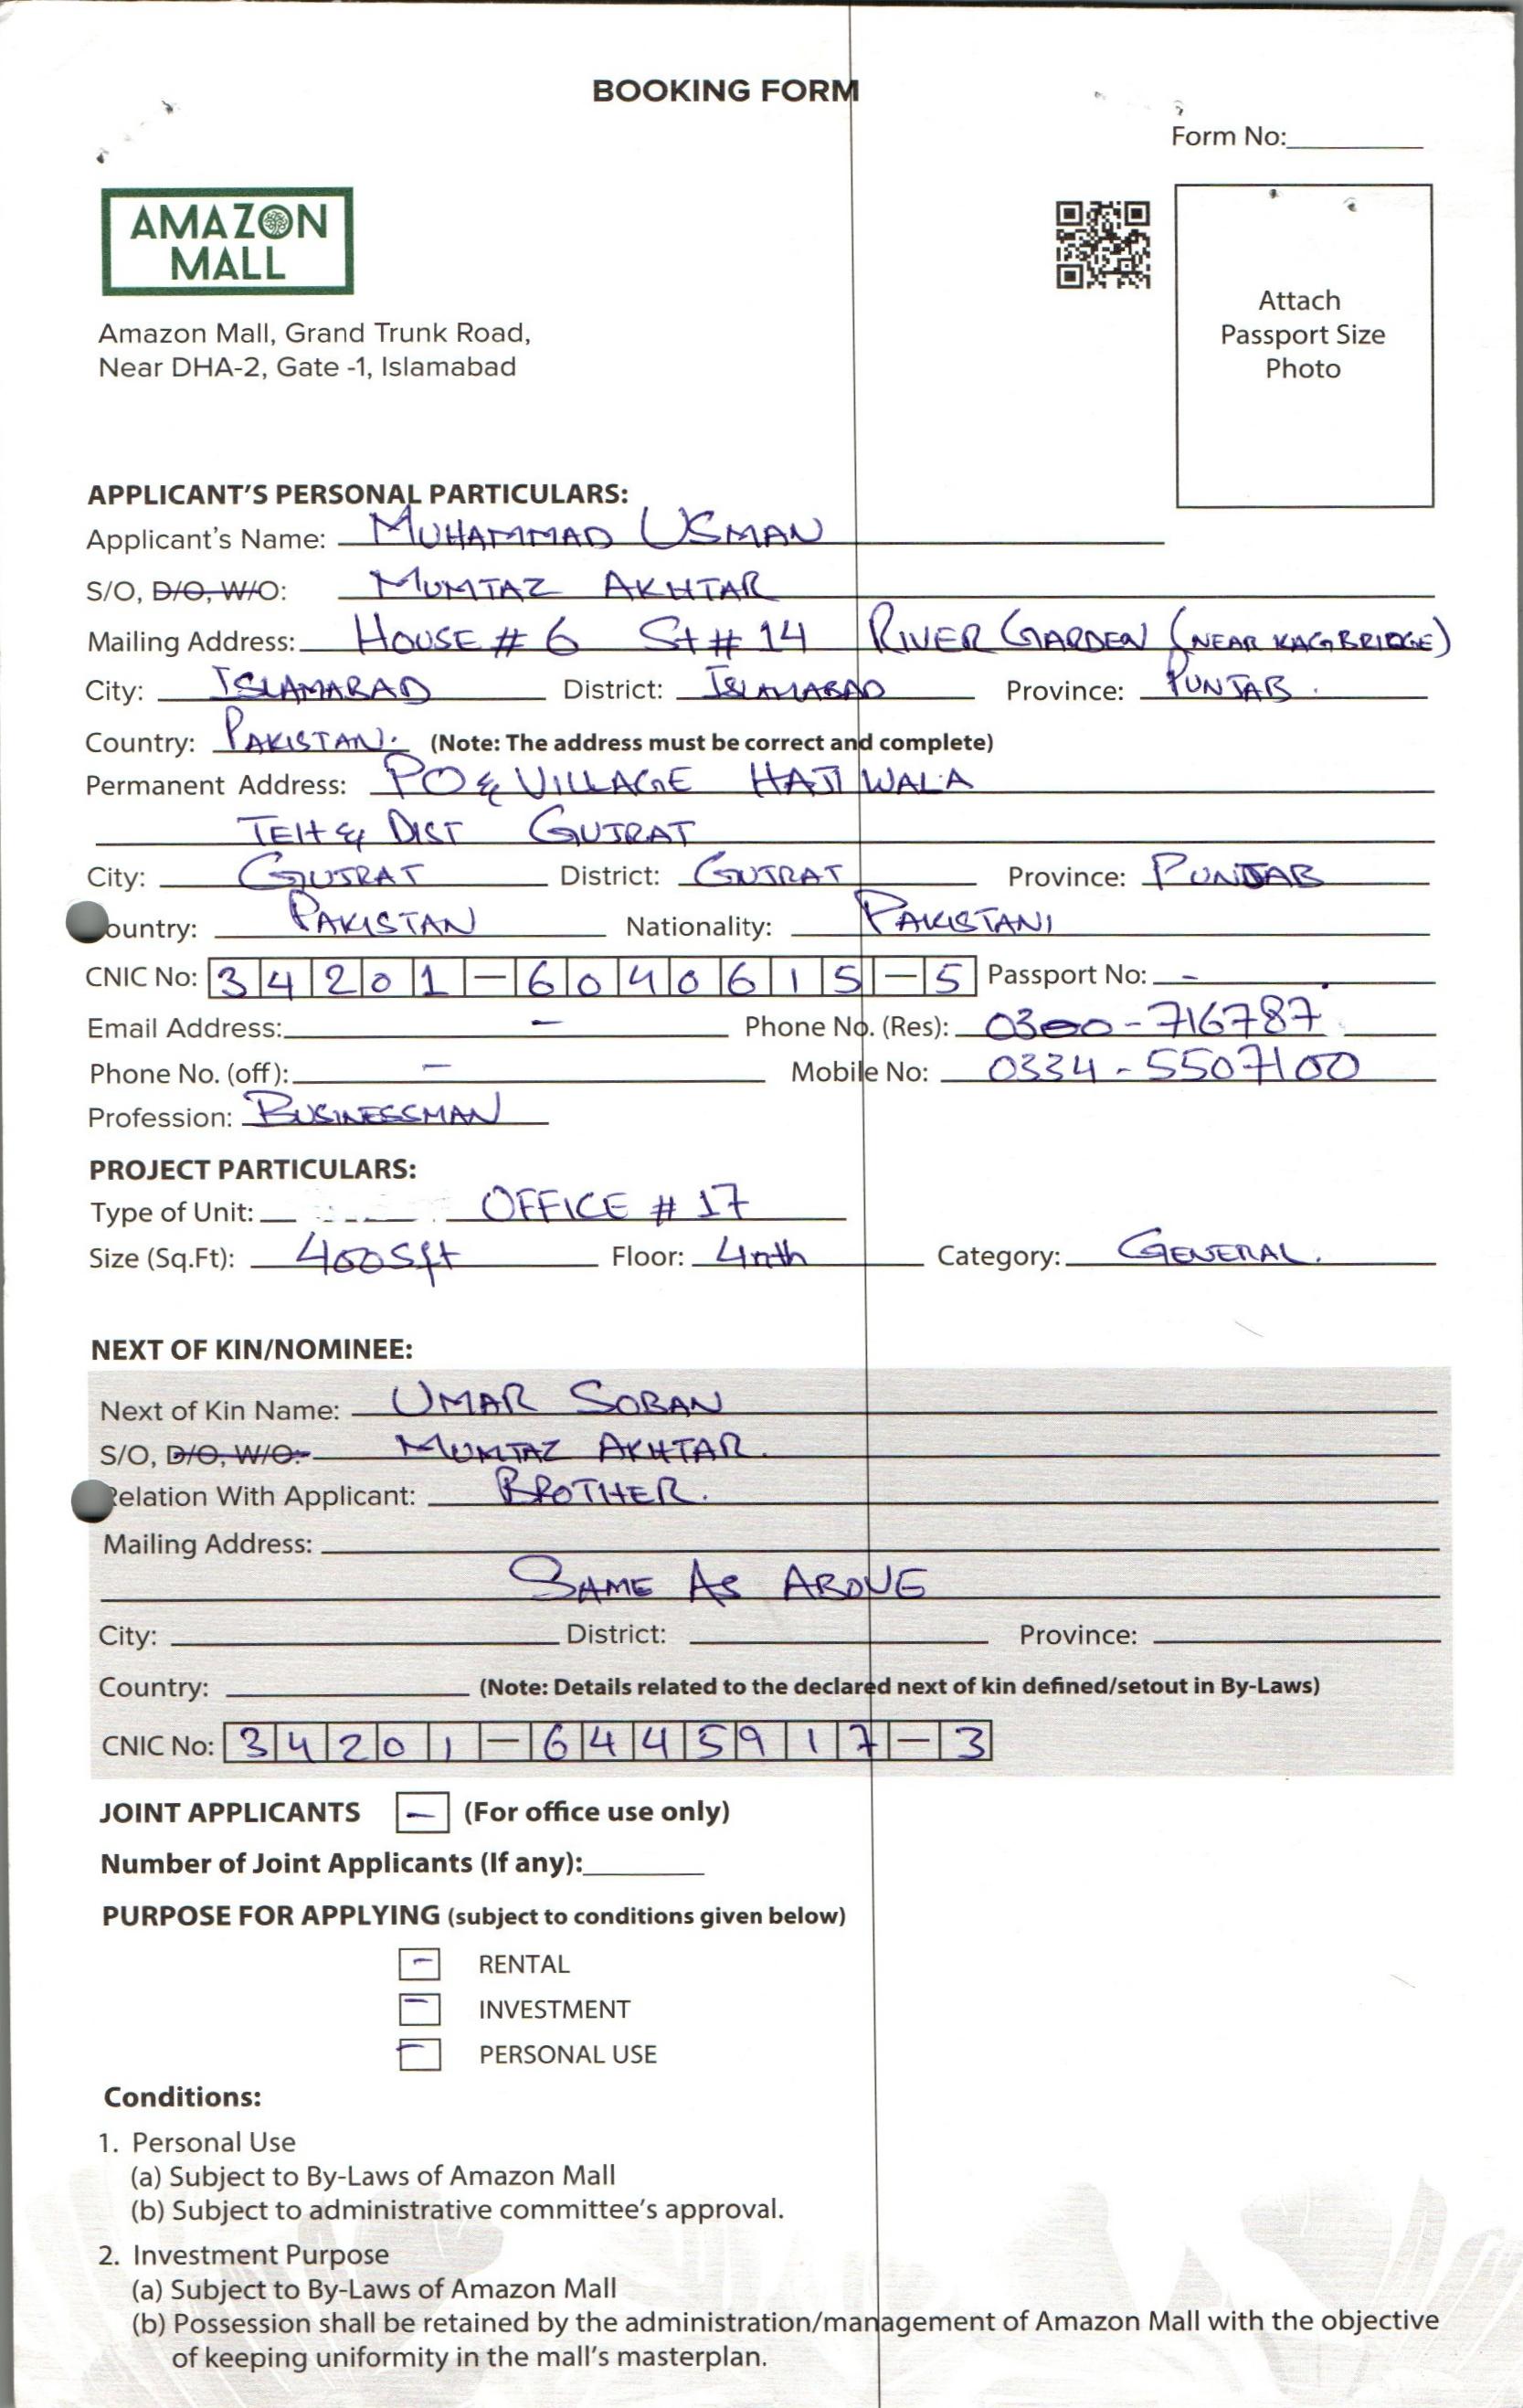 BOOKING FORM
Form No:
AMAZON
MALL
Attach
Passport Size
Photo
Amazon Mall, Grand Trunk Road,
Near DHA-2, Gate -1, Islamabad
APPLICANT'S PERSONAL PARTICULARS:
Applicant's Name: MUHAMMAD USMAN
S/O, D/O, W/O: MUMTAZ AKHTAR
Mailing Address: HOUSE # 6 St # 14 RIVER GARDEN (NEAR KAG BRIDGE)
City: ISLAMABAD District: ISLAMABAD Province: PUNJAB.
Country: PAKISTAN. (Note: The address must be correct and complete)
Permanent Address: PO & VILLAGE HAJI WALA
TEH & DIST GUJRAT
City: GUJRAT District: GUJRAT Province: PUNJAB
ountry: PAKISTAN Nationality: PAKISTANI
CNIC No: 34201-6040615-5 Passport No: -
Email Address: - Phone No. (Res): 0300-716787
Phone No. (off): - Mobile No: 0334-5507100
Profession: BUSINESSMAN
PROJECT PARTICULARS:
Type of Unit: OFFICE # 17
Size (Sq.Ft): 400 Sft Floor: 4nth Category: GENERAL.
NEXT OF KIN/NOMINEE:
Next of Kin Name: UMAR SOBAN
S/O, D/O, W/O: MUMTAZ AKHTAR.
elation With Applicant: BROTHER.
Mailing Address:
SAME AS ABOVE
City: District: Province:
Country: (Note: Details related to the declared next of kin defined/setout in By-Laws)
CNIC No: 34201-6445917-3
JOINT APPLICANTS - (For office use only)
Number of Joint Applicants (If any):
PURPOSE FOR APPLYING (subject to conditions given below)
- RENTAL
- INVESTMENT
- PERSONAL USE
Conditions:
1. Personal Use
(a) Subject to By-Laws of Amazon Mall
(b) Subject to administrative committee's approval.
2. Investment Purpose
(a) Subject to By-Laws of Amazon Mall
(b) Possession shall be retained by the administration/management of Amazon Mall with the objective
of keeping uniformity in the mall's masterplan.